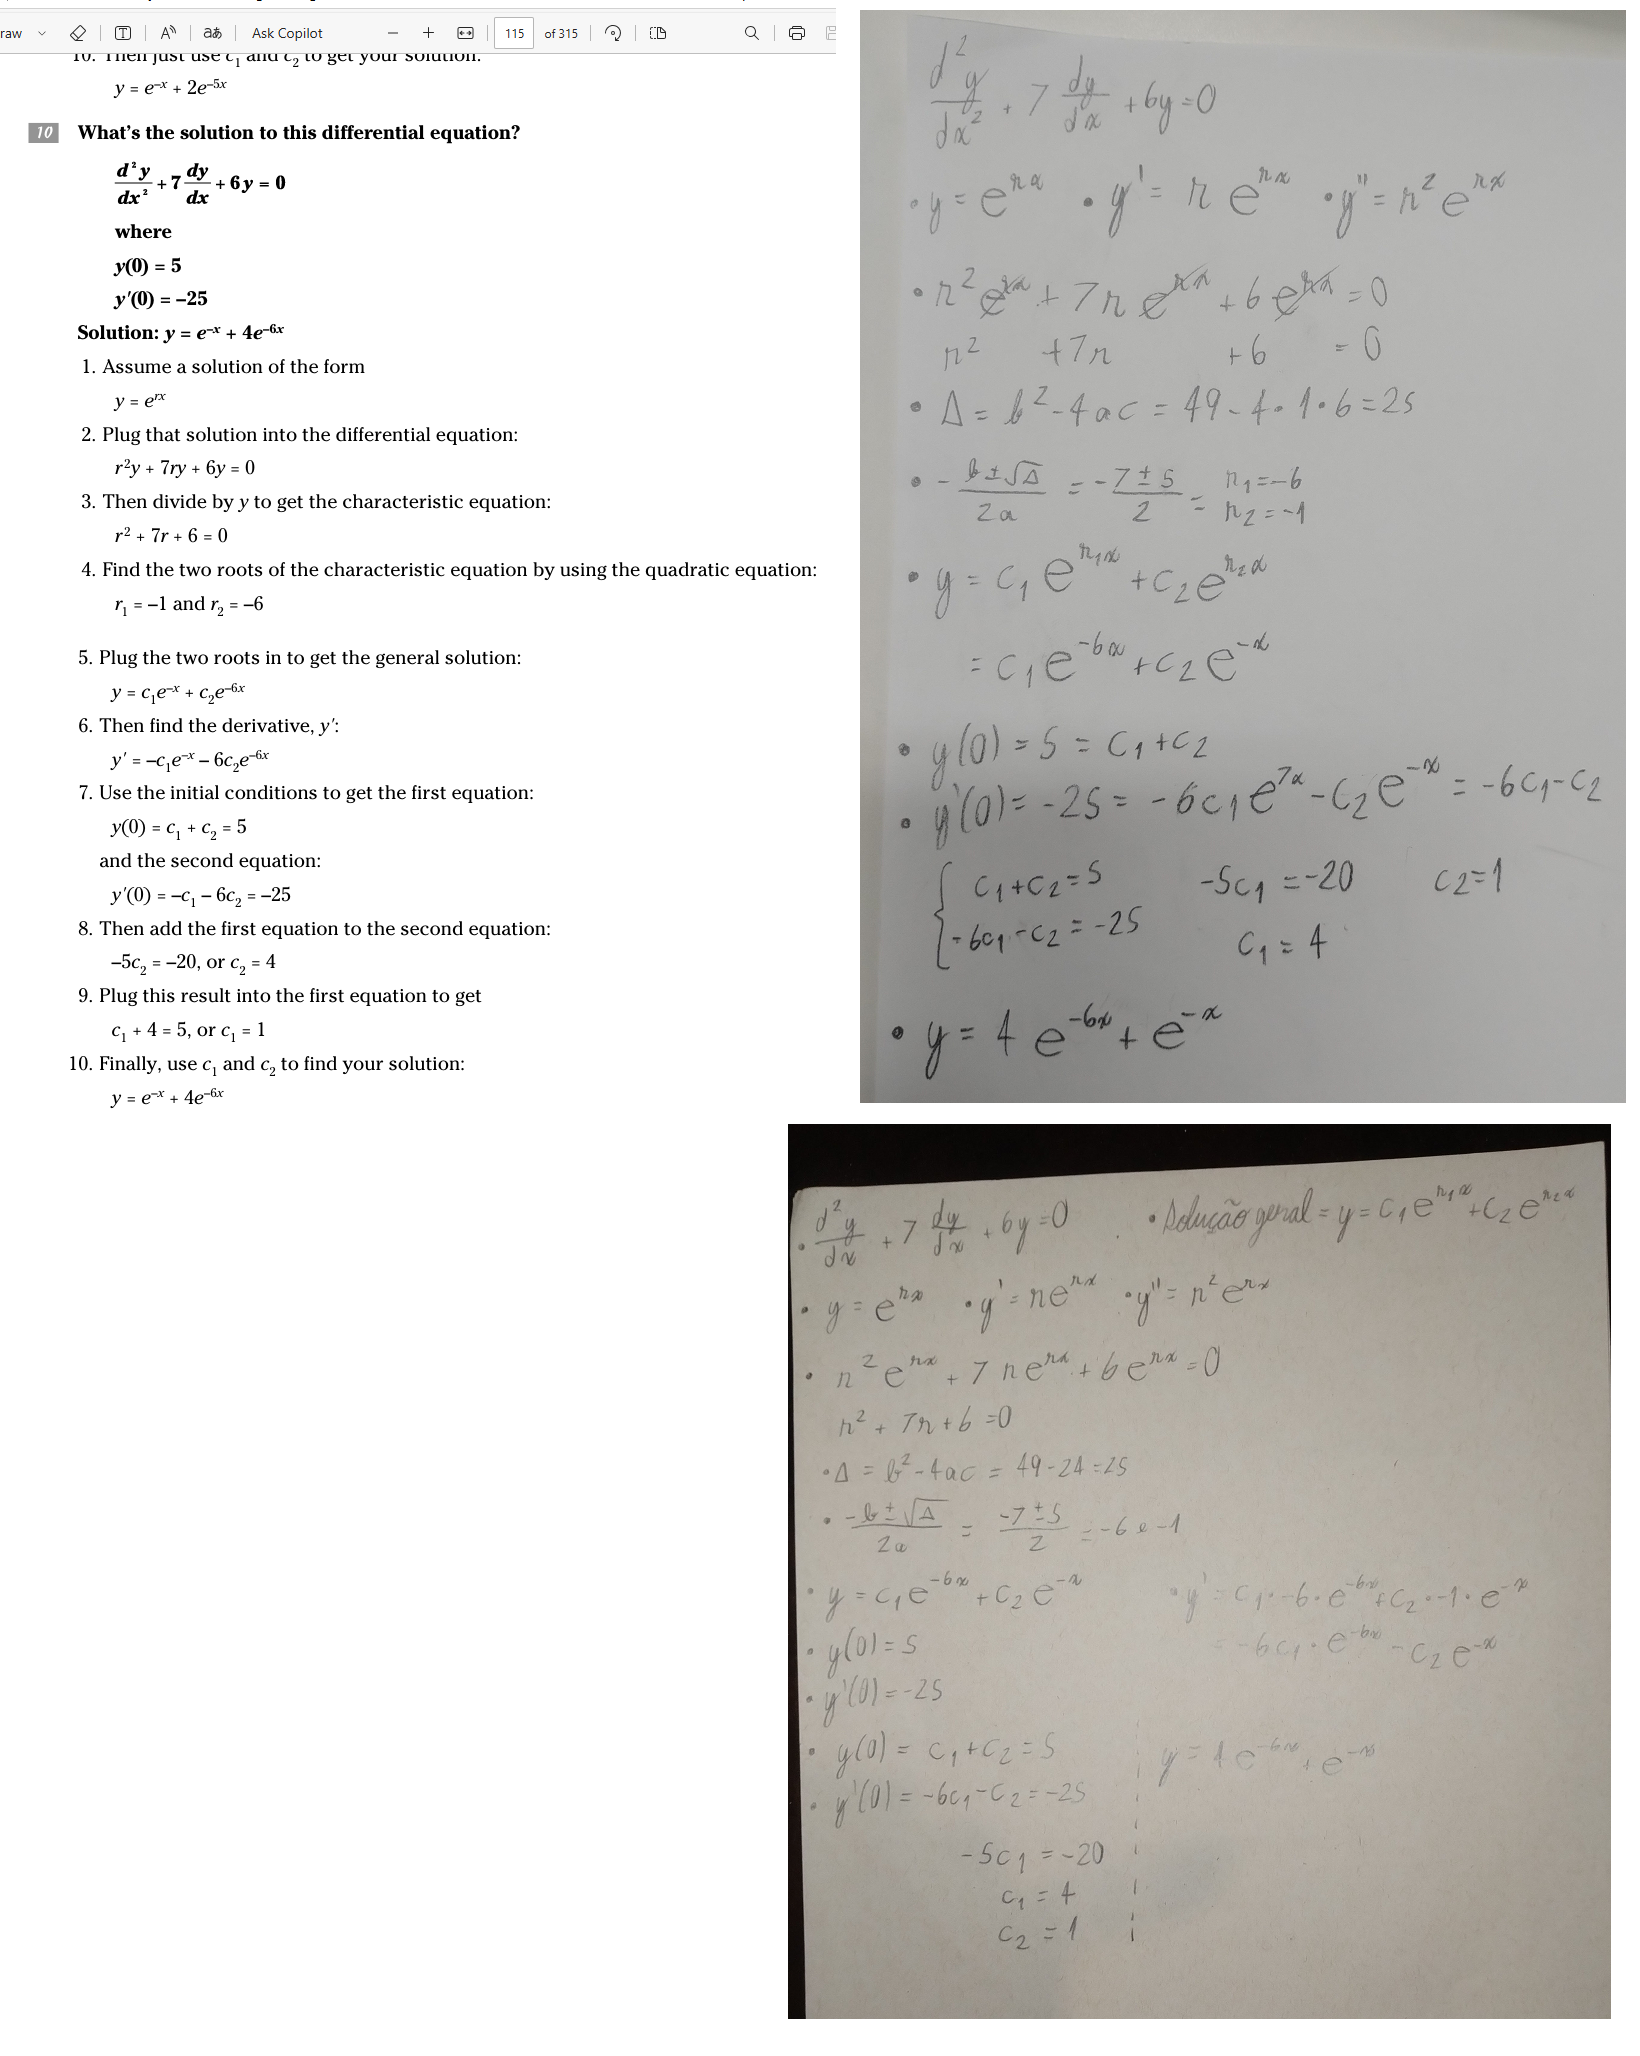 raw
Ask Copilot
115 of 315
10. Then just use c₁ and c₂ to get your solution:
y = e⁻ˣ + 2e⁻⁵ˣ
10 What's the solution to this differential equation?
d²y/dx² + 7 dy/dx + 6y = 0
where
y(0) = 5
y′(0) = –25
Solution: y = e⁻ˣ + 4e⁻⁶ˣ
1. Assume a solution of the form
y = eʳˣ
2. Plug that solution into the differential equation:
r²y + 7ry + 6y = 0
3. Then divide by y to get the characteristic equation:
r² + 7r + 6 = 0
4. Find the two roots of the characteristic equation by using the quadratic equation:
r₁ = –1 and r₂ = –6
5. Plug the two roots in to get the general solution:
y = c₁e⁻ˣ + c₂e⁻⁶ˣ
6. Then find the derivative, y′:
y′ = –c₁e⁻ˣ – 6c₂e⁻⁶ˣ
7. Use the initial conditions to get the first equation:
y(0) = c₁ + c₂ = 5
and the second equation:
y′(0) = –c₁ – 6c₂ = –25
8. Then add the first equation to the second equation:
–5c₂ = –20, or c₂ = 4
9. Plug this result into the first equation to get
c₁ + 4 = 5, or c₁ = 1
10. Finally, use c₁ and c₂ to find your solution:
y = e⁻ˣ + 4e⁻⁶ˣ
d²y/dx² + 7 dy/dx + 6y = 0
• y = eʳˣ • y' = r eʳˣ • y'' = r² eʳˣ
• r² eʳˣ + 7r eʳˣ + 6 eʳˣ = 0
r² + 7r + 6 = 0
• Δ = b² - 4ac = 49 - 4 • 1 • 6 = 25
• - b ± √Δ / 2a = -7 ± 5 / 2 = r₁ = -6
r₂ = -1
• y = c₁ e^(r₁x) + c₂ e^(r₂x)
= c₁ e⁻⁶ˣ + c₂ e⁻ˣ
• y(0) = 5 = c₁ + c₂
• y'(0) = -25 = -6c₁ e⁷ˣ - c₂ e⁻ˣ = -6c₁ - c₂
{ c₁ + c₂ = 5 -5c₁ = -20 c₂ = 1
-6c₁ - c₂ = -25 c₁ = 4
• y = 4 e⁻⁶ˣ + e⁻ˣ
• d²y/dx + 7 dy/dx + 6y = 0 • Solução geral = y = c₁ e^(r₁x) + c₂ e^(r₂x)
• y = eʳˣ • y' = r eʳˣ • y'' = r² eʳˣ
• r² eʳˣ + 7 r eʳˣ + 6 eʳˣ = 0
r² + 7r + 6 = 0
• Δ = b² - 4ac = 49 - 24 = 25
• -b ± √Δ / 2a = -7 ± 5 / 2 = -6 e -1
• y = c₁ e⁻⁶ˣ + c₂ e⁻ˣ • y' = c₁ • -6 • e⁻⁶ˣ + c₂ • -1 • e⁻ˣ
• y(0) = 5 = -6c₁ • e⁻⁶ˣ - c₂ e⁻ˣ
• y'(0) = -25
• y(0) = c₁ + c₂ = 5 y = 4e⁻⁶ˣ + e⁻ˣ
• y'(0) = -6c₁ - c₂ = -25
-5c₁ = -20
c₁ = 4
c₂ = 1